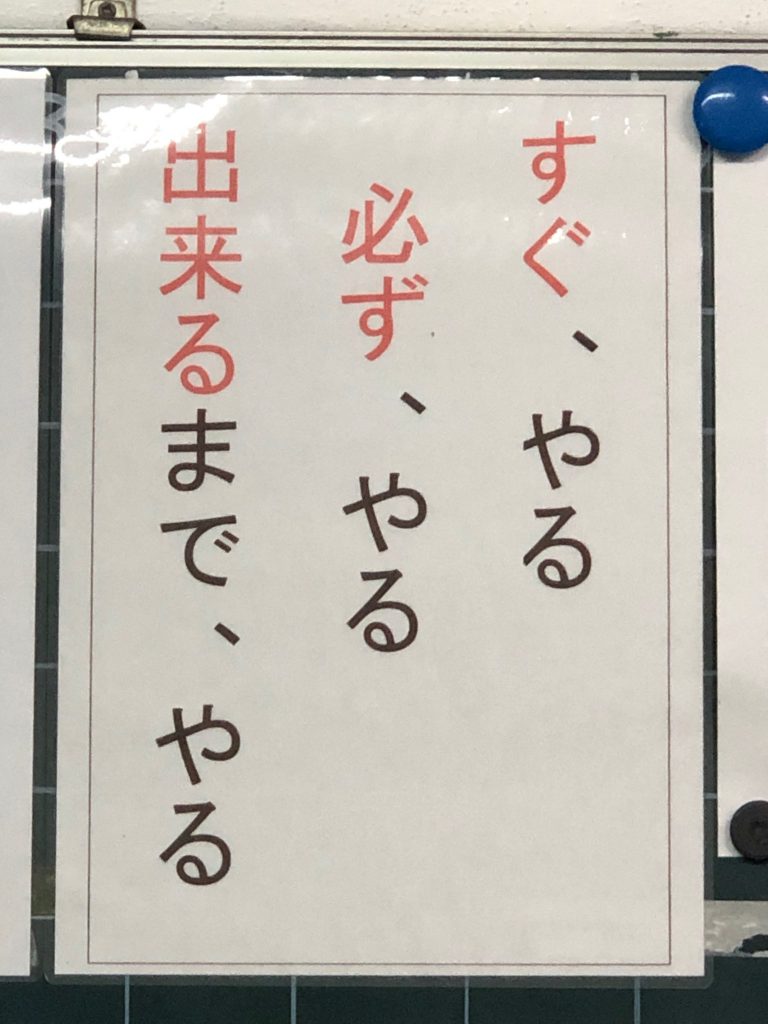 すぐ、やる
必ず、やる
出来るまで、やる